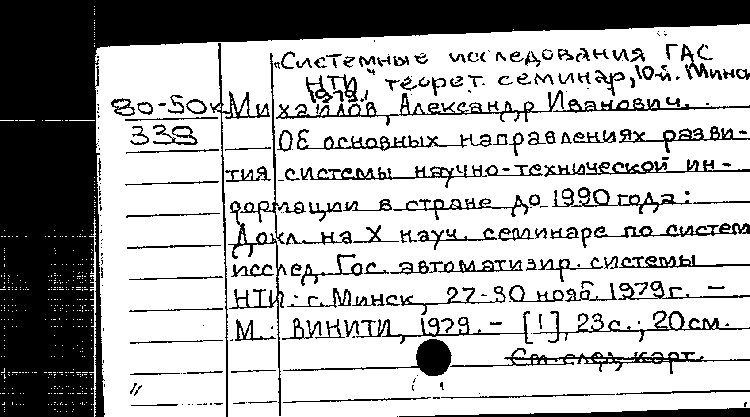 "Системные исследования ГАС
НТИ", теорет. семинар, 10-й. Минск
1979.
80-50к Михайлов, Александр Иванович.
338 Об основных направлениях разви-
тия системы научно-технической ин-
формации в стране до 1990 года:
Докл. на X науч. семинаре по систем
исслед. Гос. автоматизир. системы
НТИ: г. Минск, 27-30 нояб. 1979г. –
М.: ВИНИТИ, 1979. – [1], 23с.; 20см.
См след. карт.